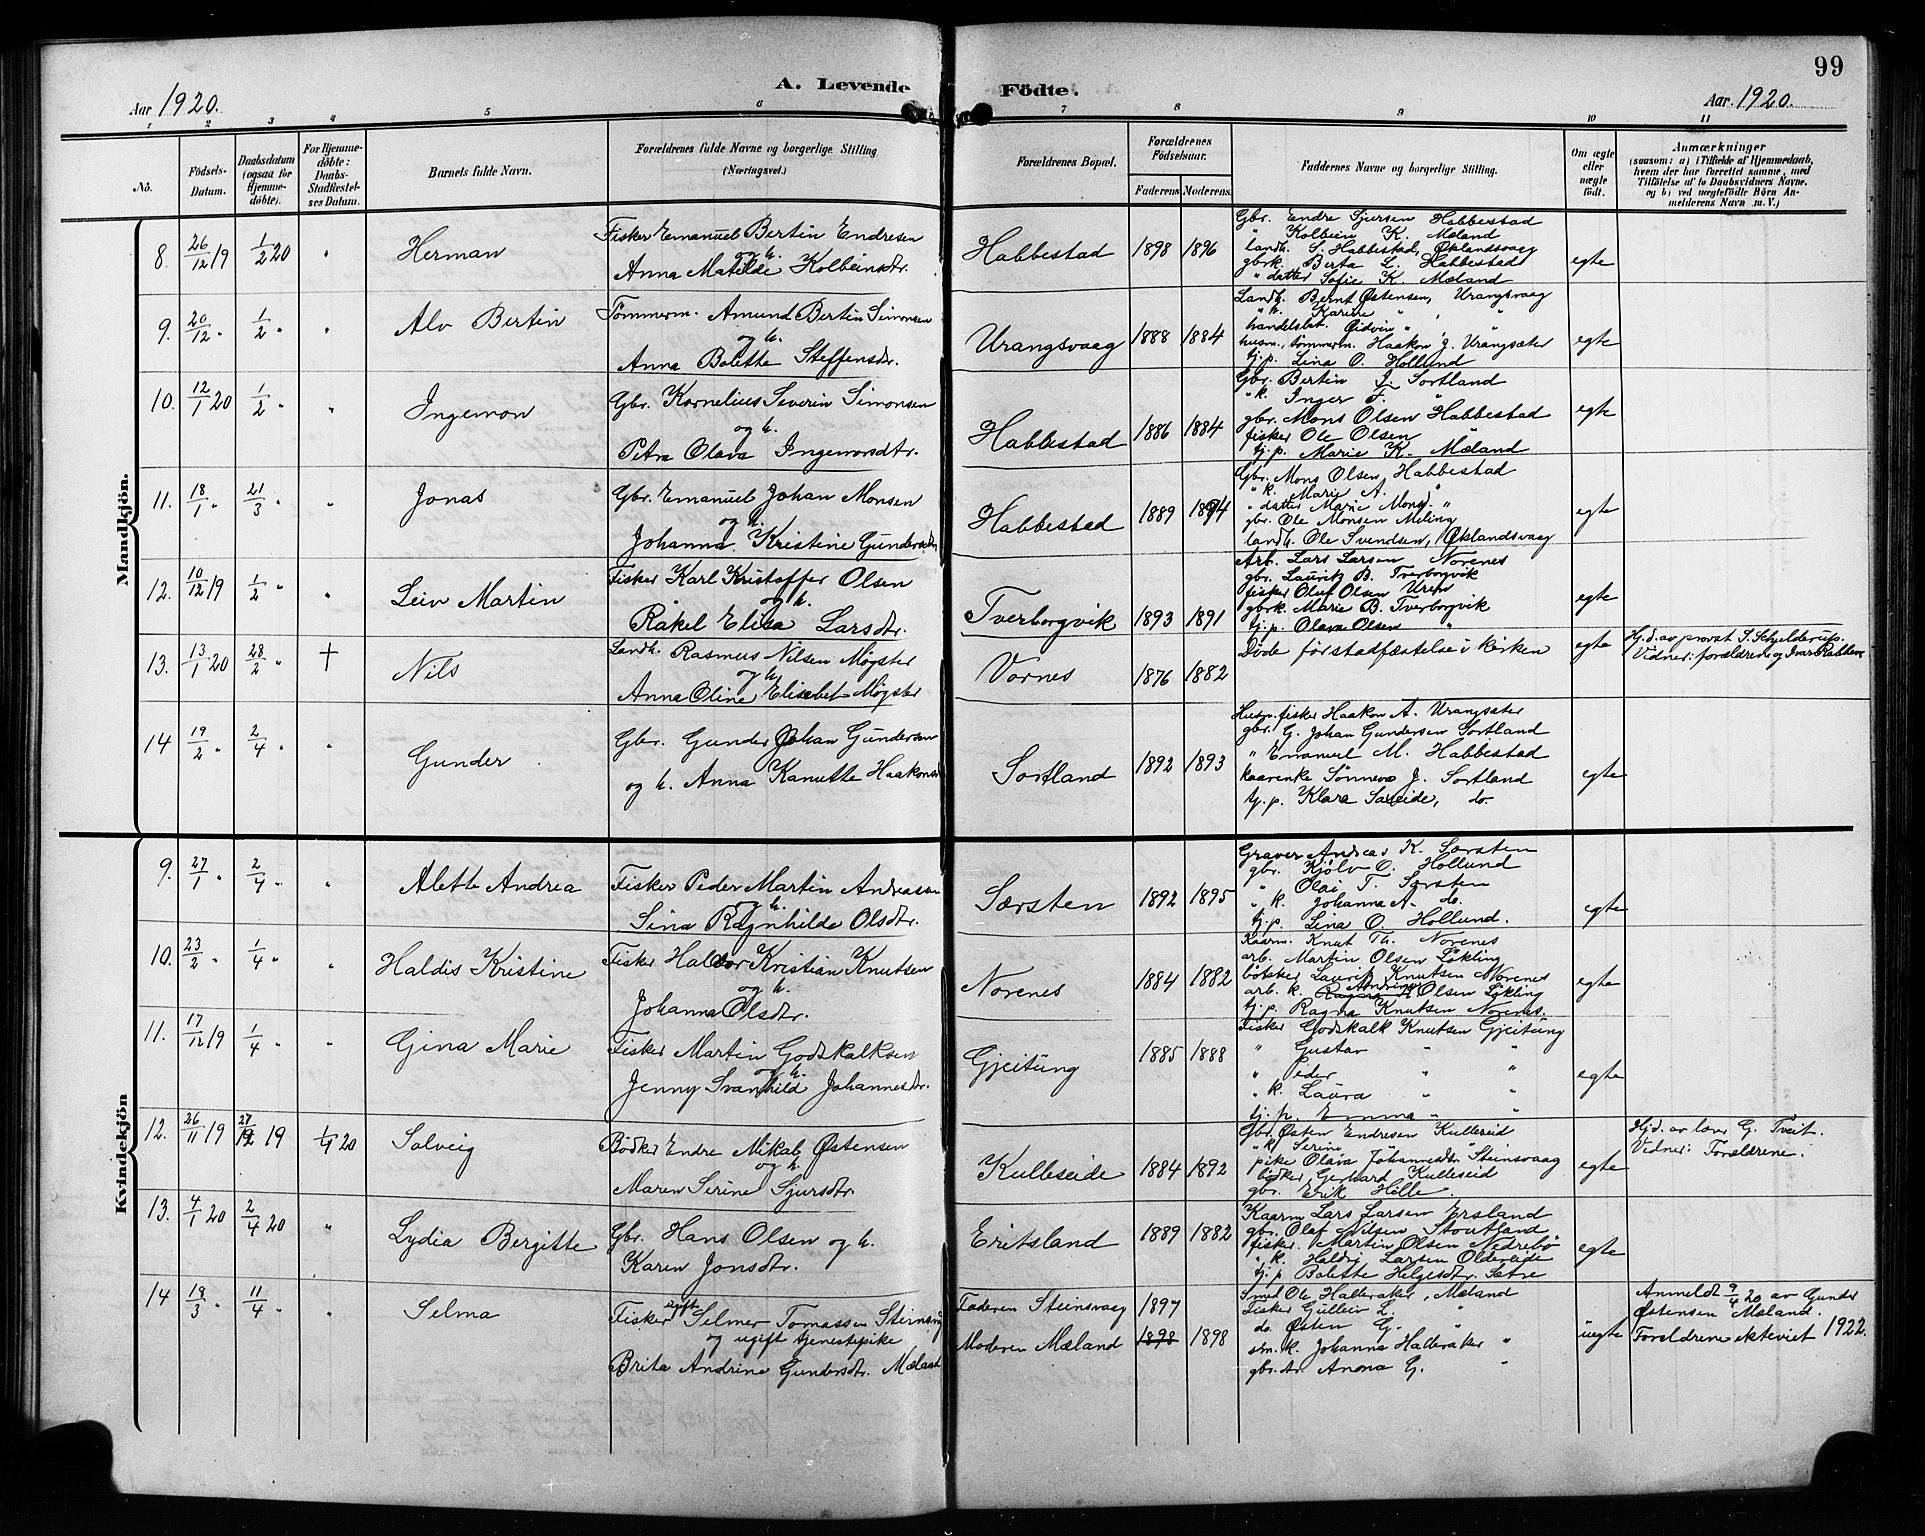 99
Aar 1920. A. Levende Födte. Aar 1920.
1 2 3 4 5 6 7 8 9 10 11
No. Födsels-Datum. Daabsdatum (ogsaa for Hjemme-döbte). For Hjemme-döbte: Daabs-Stadfæstel-ses Datum. Barnets fulde Navn. Forældrenes fulde Navne og borgerlige Stilling (Næringsvei.) Forældrenes Bopæl. Forældrenes Födselsaar. Faderens. Moderens. Faddernes Navne og borgerlige Stilling. Om ægte eller uægte født. Anmærkninger (saasom: a) i Tilfælde af Hjemmedaab, hvem der har forrettet samme, med Tilföielse af to Daabsvidners Navne, og b) ved uægtefödte Börn An-melderens Navn m. V.)
Mandkjön.
8. 26/12 19 1/2 20 " Herman
Fisker Emanuel Bertin Endresen
og h.
Anna Matilde Kolbeinsdtr.
Habbestad 1898 1896
Gbr. Endre Sjursen Habbestad
" Kolbein K. Mæland
landh. S. Habbestad, Øklandsvaag
gbrk. Berta L. Habbestad
" datter Sofie K. Mæland
egte
9. 20/12 " 1/2 " " Alv Bertin
Tömmerm. Amund Bertin Simonsen
og h.
Anna Bolette Steffensdtr.
Urangsvaag 1888 1884
Landh. Bernt Østensen, Urangsvaag
" k. Karine " , "
handelsbet. Øidvin " , "
husm., tömmerm. Haakon J. Urangsæter
tj.p. Lina O. Hollund
egte
10. 12/1 20 1/2 " " Ingemon
Gbr. Kornelius Severin Simonsen
og h.
Petra Olava Ingemonsdtr.
Habbestad 1886 1884
Gbr. Bertin J. Sortland
" k. Inger F. "
gbr. Mons Olsen Habbestad
fisker Ole Olsen
tj.p. Marie K. Mæland
egte
11. 18/1 " 21/3 " " Jonas
Gbr. Emanuel Johan Monsen
og h.
Johanna Kristine Gundersdtr
Habbestad 1889 1894
Gbr. Mons Olsen, Habbestad
" k. Marie A. "
" datter Marie Monsd. "
gbr. Ole Monsen Meling
landh. Ole Svendsen, Øklandsvaag
egte
12. 10/12 19 1/2 " " Leiv Martin
Fisker Karl Kristoffer Olsen
og h.
Rakel Elisa Larsdtr.
Tverborgvik 1893 1891
Arb. Lars Larsen Norenes
gbr. Lauritz B. Tverborgvik
fisker Oluf Olsen
gbrk. Marie B. Tverborgvik
tj.p. Olava Olsen "
egte
13. 13/1 20 28/2 " † Nils
Landh. Rasmus Nilsen Møgster
og h.
Anna Oline Elisabet Møgster
Vornes 1876 1882
Døde før stadfæstelse i kirken
egte
Hj.d. av provst S. Schjelderup.
Vidner: forældrene og Ivar Rabben
14 19/2 " 2/4 " " Gunder
Gbr. Gunder Johan Gundersen
og h. Anna Kanutte Haakonsd
Sortland 1892 1893
Husm. fisker Haakon A. Urangsæter
gbr. G. Johan Gundersen Sortland
" Emanuel M. Habbestad
kaarenke Sönneva J. Sortland
tj.p. Klara Sæveide, do.
egte
Kvindekjön
9. 27/1 " 2/4 " " Alette Andrea
Fisker Peder Martin Andreassen
og h.
Sina Ragnhilde Olsdtr.
Særsten 1892 1895
Graver Andreas K. Særsten
gbr. Kjölv O. Hollund
" Olai T. Særsten
" k. Johanna A. do.
tj.p. Lina O. Hollund.
egte
10. 23/2 " 1/4 " " Haldis Kristine
Fisker Haldor Kristian Knutsen
og h.
Johanna Olsdtr.
Norenes 1884 1882
Kaarm. Knut Th. Norenes
arb. Martin Olsen Løkling
bötsker Lauritz Knutsen Norenes
arb. k. Andrine Olsen Løkling
tj.p. Ragna Knutsen Norenes.
egte
11. 17/12 19 1/4 " " Gina Marie
Fisker Martin Godskalksen
og h.
Jenny Svanhild Johannesdtr.
Gjeitung 1885 1888
Fisker Godskalk Knutsen Gjeitung
" Gustav " "
" Peder " "
" k. Laura " "
tj.p. Emma " "
egte
12. 26/11 19 27/12 19 1/4 20 Solveig
Bödker Endre Mikal Østensen
og h.
Maren Serine Sjursdtr.
Kulleseide 1884 1892
Gbr. Østen Endresen Kulleseid
" k. Serine "
pike Olava Johannesdtr. Steinsvaag
bödker Gerhard Kulleseid
gbr. Erik Hille.
egte
Hjd. av lærer G. Tveit.
Vidner: Forældrene.
13. 4/1 20 2/4 20 " Lydia Bergitte
Gbr. Hans Olsen og h.
Karen Jonsdtr.
Eritsland 1889 1882
Kaarm Lars Larsen Ersland
gbr. Olaf Nilsen Stoutland
fisker. Martin Olsen Nedrebö
" k. Haldri Larsen Oldereide
tj.p. Bolette Helgesdtr. Sætre
egte
14 18/3 " 11/4 " " Selma
Fisker ugift Selmer Tomassen Steinsvåg
og ugift tjenestepike
Brita Andrine Gundersdtr. Mæland
Faderen Steinsvaag 1897
Moderen Mæland 1898 1898
Smed Ole Halleraker, Mæland
Fisker Gulleiv L. "
do. Østen G. "
sm.k. Johanna Halleraker "
gbr. dr. Anna G. "
uegte
Anmeldt 9/4 20 av Gunder
Østensen Mæland.
Forældrene ekteviet 1922.